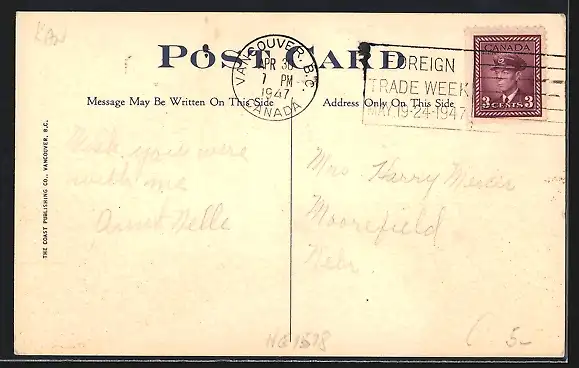 POST CARD
VANCOUVER, B.C.
APR 30
7 PM
1947
CANADA
FOREIGN
TRADE WEEK
MAY, 19-24-1947
CANADA
3 CENTS 3
Message May Be Written On This Side
Address Only On This Side
THE COAST PUBLISHING CO., VANCOUVER, B.C.
Wish you were
with me
Aunt Nelle
Mrs Harry
Moorefield
Nebr.
5-